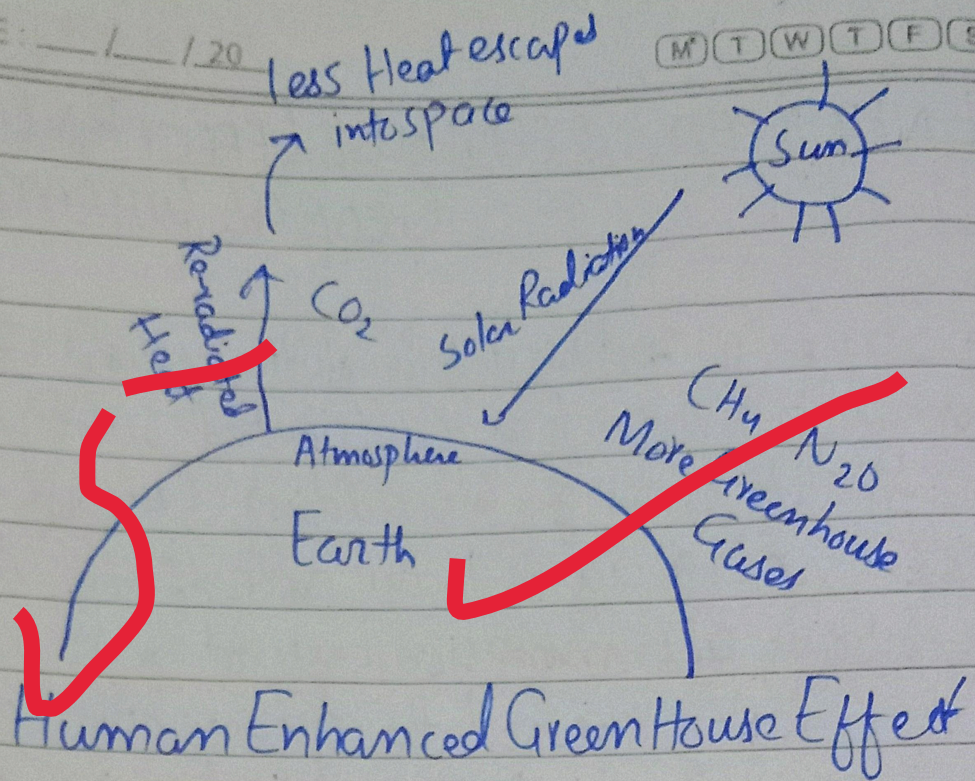 : __/__/20
M T W T F S
Less Heat escaped
into space
Sun
Re-radiated
Heat
CO2
Solar Radiation
CH4 N2O
More Greenhouse
Gases
Atmosphere
Earth
Human Enhanced GreenHouse Effect